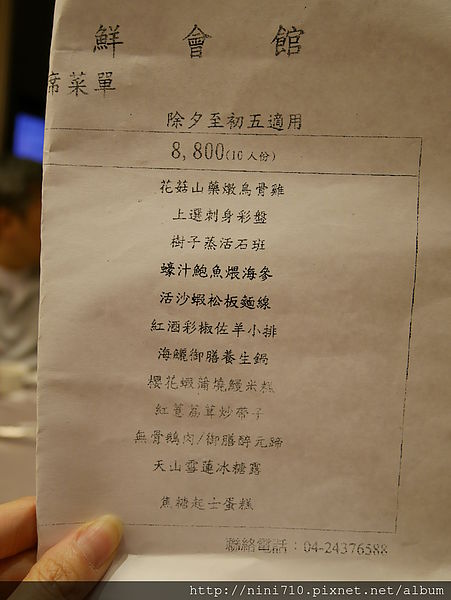 鮮會館
席菜單
除夕至初五適用
8,800(10人份)
花菇山藥燉烏骨雞
上選刺身彩盤
樹子蒸活石班
蠔汁鮑魚煨海參
活沙蝦松板麵線
紅酒彩椒佐羊小排
海鱺御膳養生鍋
櫻花蝦蒲燒鰻米糕
紅蔥荔茸炒帶子
無骨鵝肉/御膳醉元蹄
天山雪蓮冰糖露
焦糖起士蛋糕
聯絡電話:04-24376588
http://nini710.pixnet.net/album